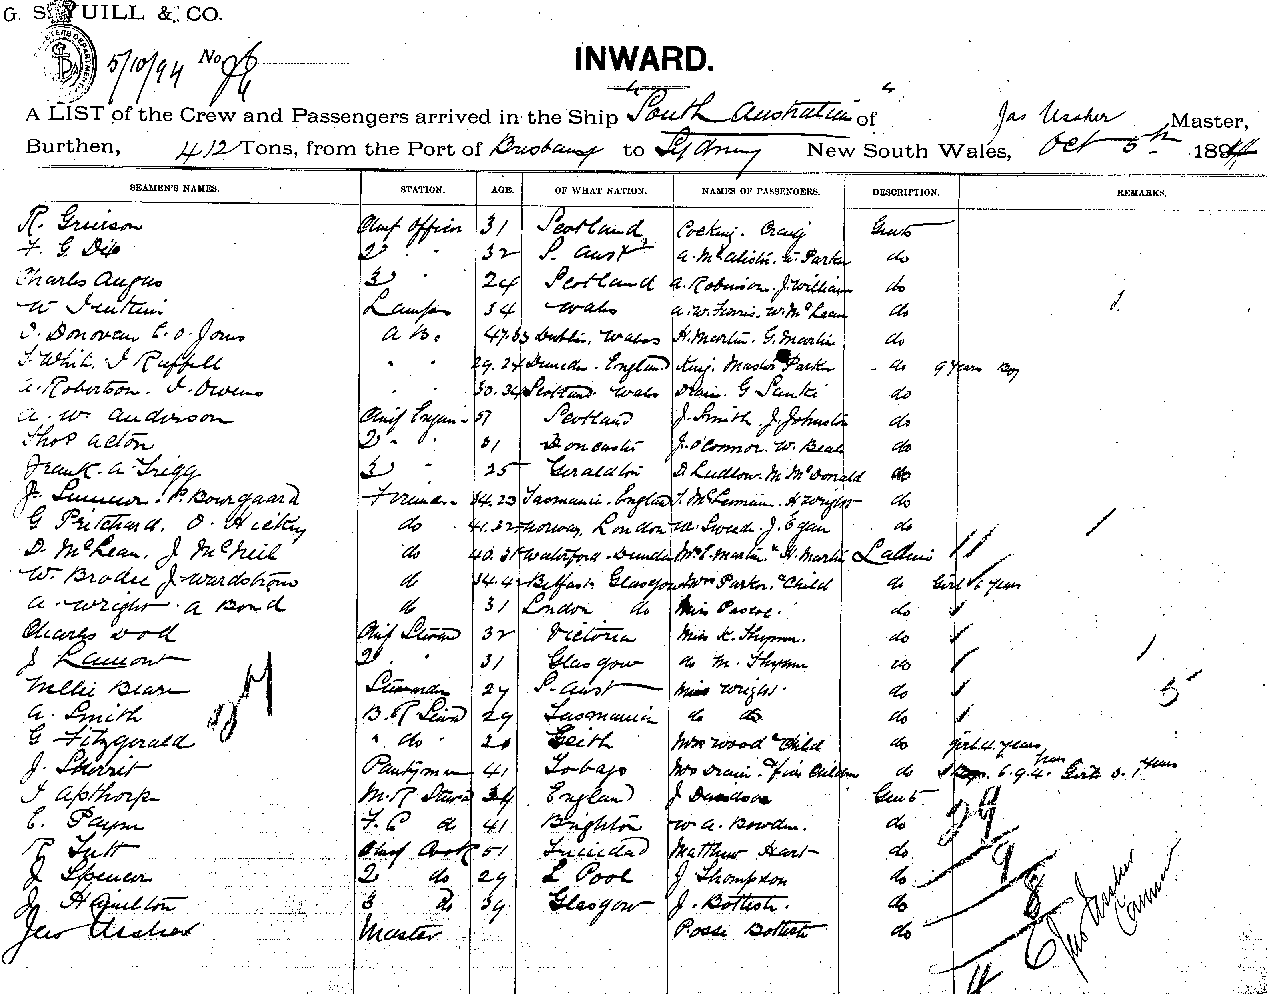 G. S. YUILL & CO.
5/10/94 No
INWARD.
A LIST of the Crew and Passengers arrived in the Ship "South Australian" of Jas Ussher Master,
Burthen, 412 Tons, from the Port of Brisbane to Sydney New South Wales, Oct 5th 1894
SEAMEN'S NAMES. STATION. AGE. OF WHAT NATION. NAMES OF PASSENGERS. DESCRIPTION. REMARKS.
R. Grierson Chief Officer 31 Scotland Cocking. Craig Gents
F. G. Dix 2 " " 32 S. Aust A. McAlister. W. Parker do
Charles Angus 3 " 24 Scotland A. Robinson. J. William do
W Lamps 34 Wales A. W. Ferris. W. McLean do
J. Donovan E. O. Jones A B. 47.33 Dublin. Wales H. Martin. G. Martin do
S. White. J Russell " " 29.24 Dundee. England King. Master Parker do 9 years Boy
A. Robertson. J. Owens " " 30.34 Scotland Wales Drain. G do
A. W. Anderson Chief Engin 57 Scotland J. Smith J. Johnston do
Thos Acton 2 " " 31 Doncaster J. O'Connor. W. Beale do
Frank. A Trigg 3 " 25 Geraldton D. Ludlow. M. McDonald do
J. P. Bourgaard Fireman 34.23 Tasmania. England H Wright do
G Pritchard. O. Hickey do 41.32 Norway, London W. Swede. J. Egan do
D. McLean. J. McNeil do 40.35 Waterford. Dundee Mrs E. Martin " H. Martin Ladies
W. Brodie J. Wardstrom do 34.42 Belfast. Glasgow Mrs Parker. & Child do Girl 6 years
A. Wright. A Bond do 31 London do Miss Pascoe. do
Charles Dod Chief Steward 32 Victoria Miss K. Thynne. do
J Lamont 2 " " 31 Glasgow do M. Thynne do
Nellie Beare Stewardess 27 S. Aust Miss Wright. do 5
A. Smith B. R Stewd 29 Tasmania do do do
G Fitzgerald " do 20 Leith Mrs Wood & Child do girl 4 years
J. Skerrit Pantryman 41 Tobago Mrs Drain. & five Children do
J Apthorpe M. R Steward 34 England J Davidson Gents 29
C. Payne F. C do 41 Brighton W. A. Bowden. do
R Tutt Chief Cook 51 Trinidad Matthew Hart do 9
J Spencer 2 do 29 L Pool J Thompson do 8
J Hamilton 3 do 39 Glasgow J. Bottisti. do
Jas Ussher Master Posse Bottisti do 6
Jas Ussher